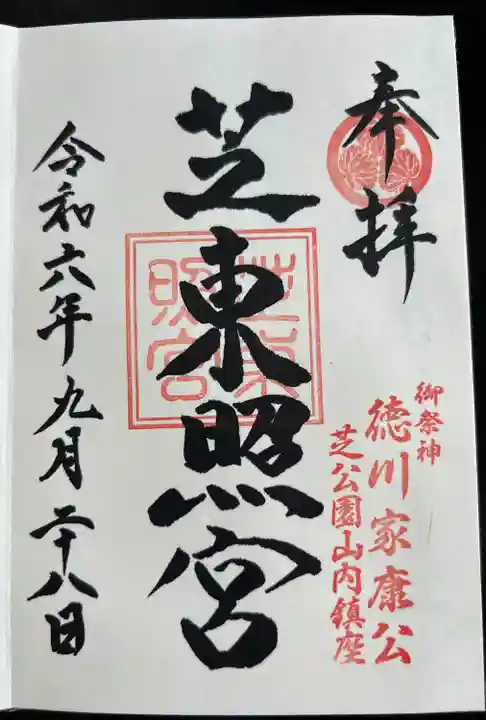 奉拝
御祭神
徳川家康公
芝公園山内鎮座
芝東照宮
芝東照宮
令和六年九月二十八日